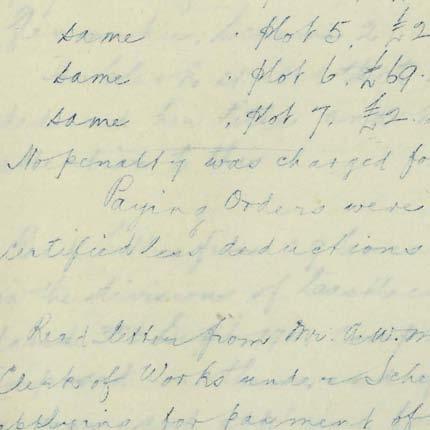 same . Plot 5. £2
same . Plot 6. £69.
same . Plot 7. £2.
No penalty was charged fo
Paying Orders were
certified less deductions
Read letter from Mr. A.W. M
Clerk of Works under Sche
applying for payment of